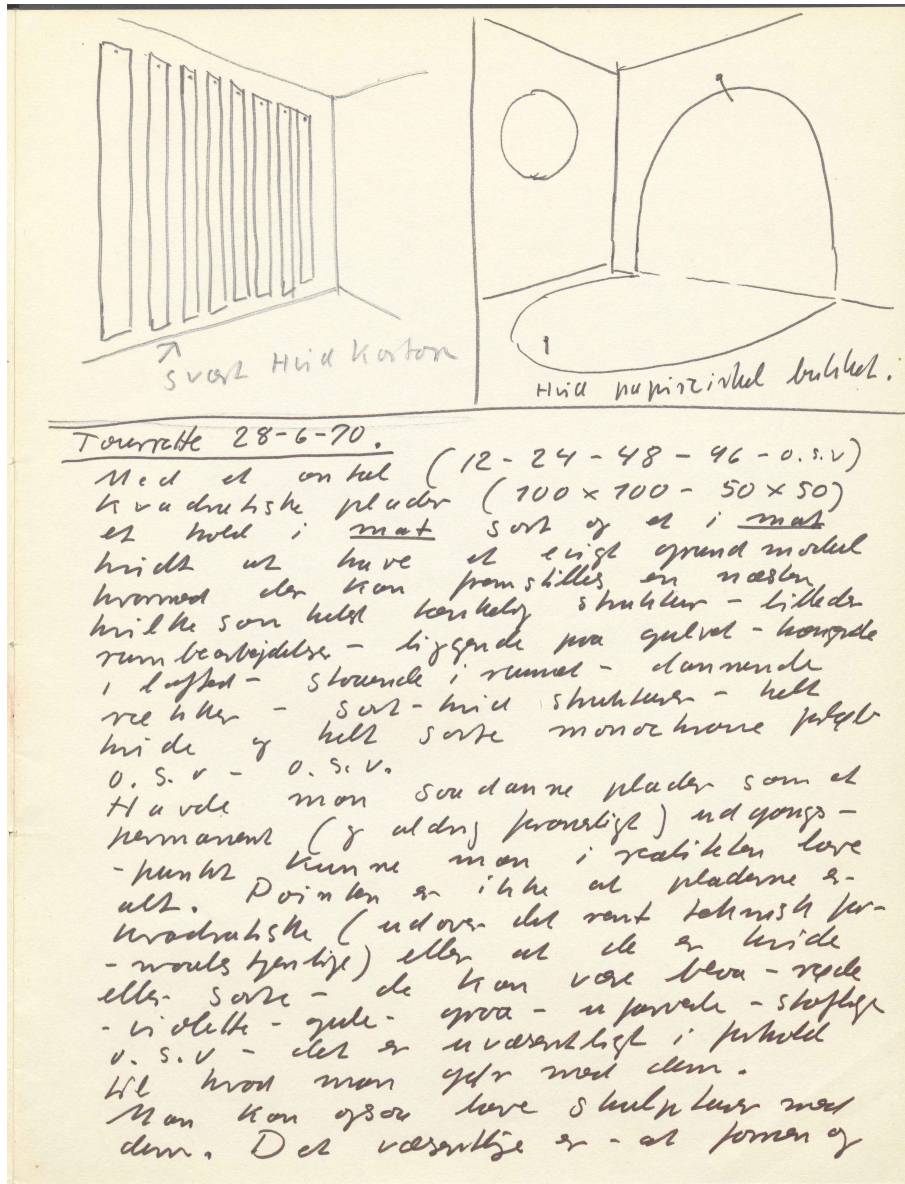 svært Hvid Karton
Hvid papircirkel bukket.
Tourrette 28-6-70.
Med et antal (12 - 24 - 48 - 96 - o.s.v)
kvadratiske plader (100 x 100 - 50 x 50)
et hold i mat sort og et i mat
hvidt at have et evigt grundmodul
hvormed der kan fremstilles en næsten
hvilkesomhelst tænkelig struktur - billeder
rumbearbejdelser - liggende paa gulvet - hængende
i loftet - staaende i rummet - dannende
rækker - sort-hvid strukturer - helt
hvide og helt sorte monochrome
o.s.v - o.s.v.
Havde man saadanne plader som et
permanent (og aldrig foraneligt) udgangs-
-punkt kunne man i realiteten lave
alt. Pointen er ikke at pladerne er
kvadratiske (udover det rent teknisk for-
-) eller at de er hvide
eller sorte - de kan være blaa - røde
- violette - gule - graa - ufarvede - stoflige
o.s.v - det er uvæsentligt i forhold
til hvad man gør med dem.
Man kan ogsaa lave skulpturer med
dem. Det væsentlige er - at formen og